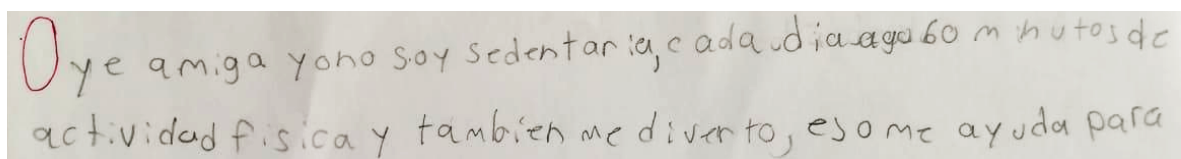 Oye amiga yo no soy sedentaria, cada dia ago 60 minutos de
actividad fisica y tambien me diverto, eso me ayuda para